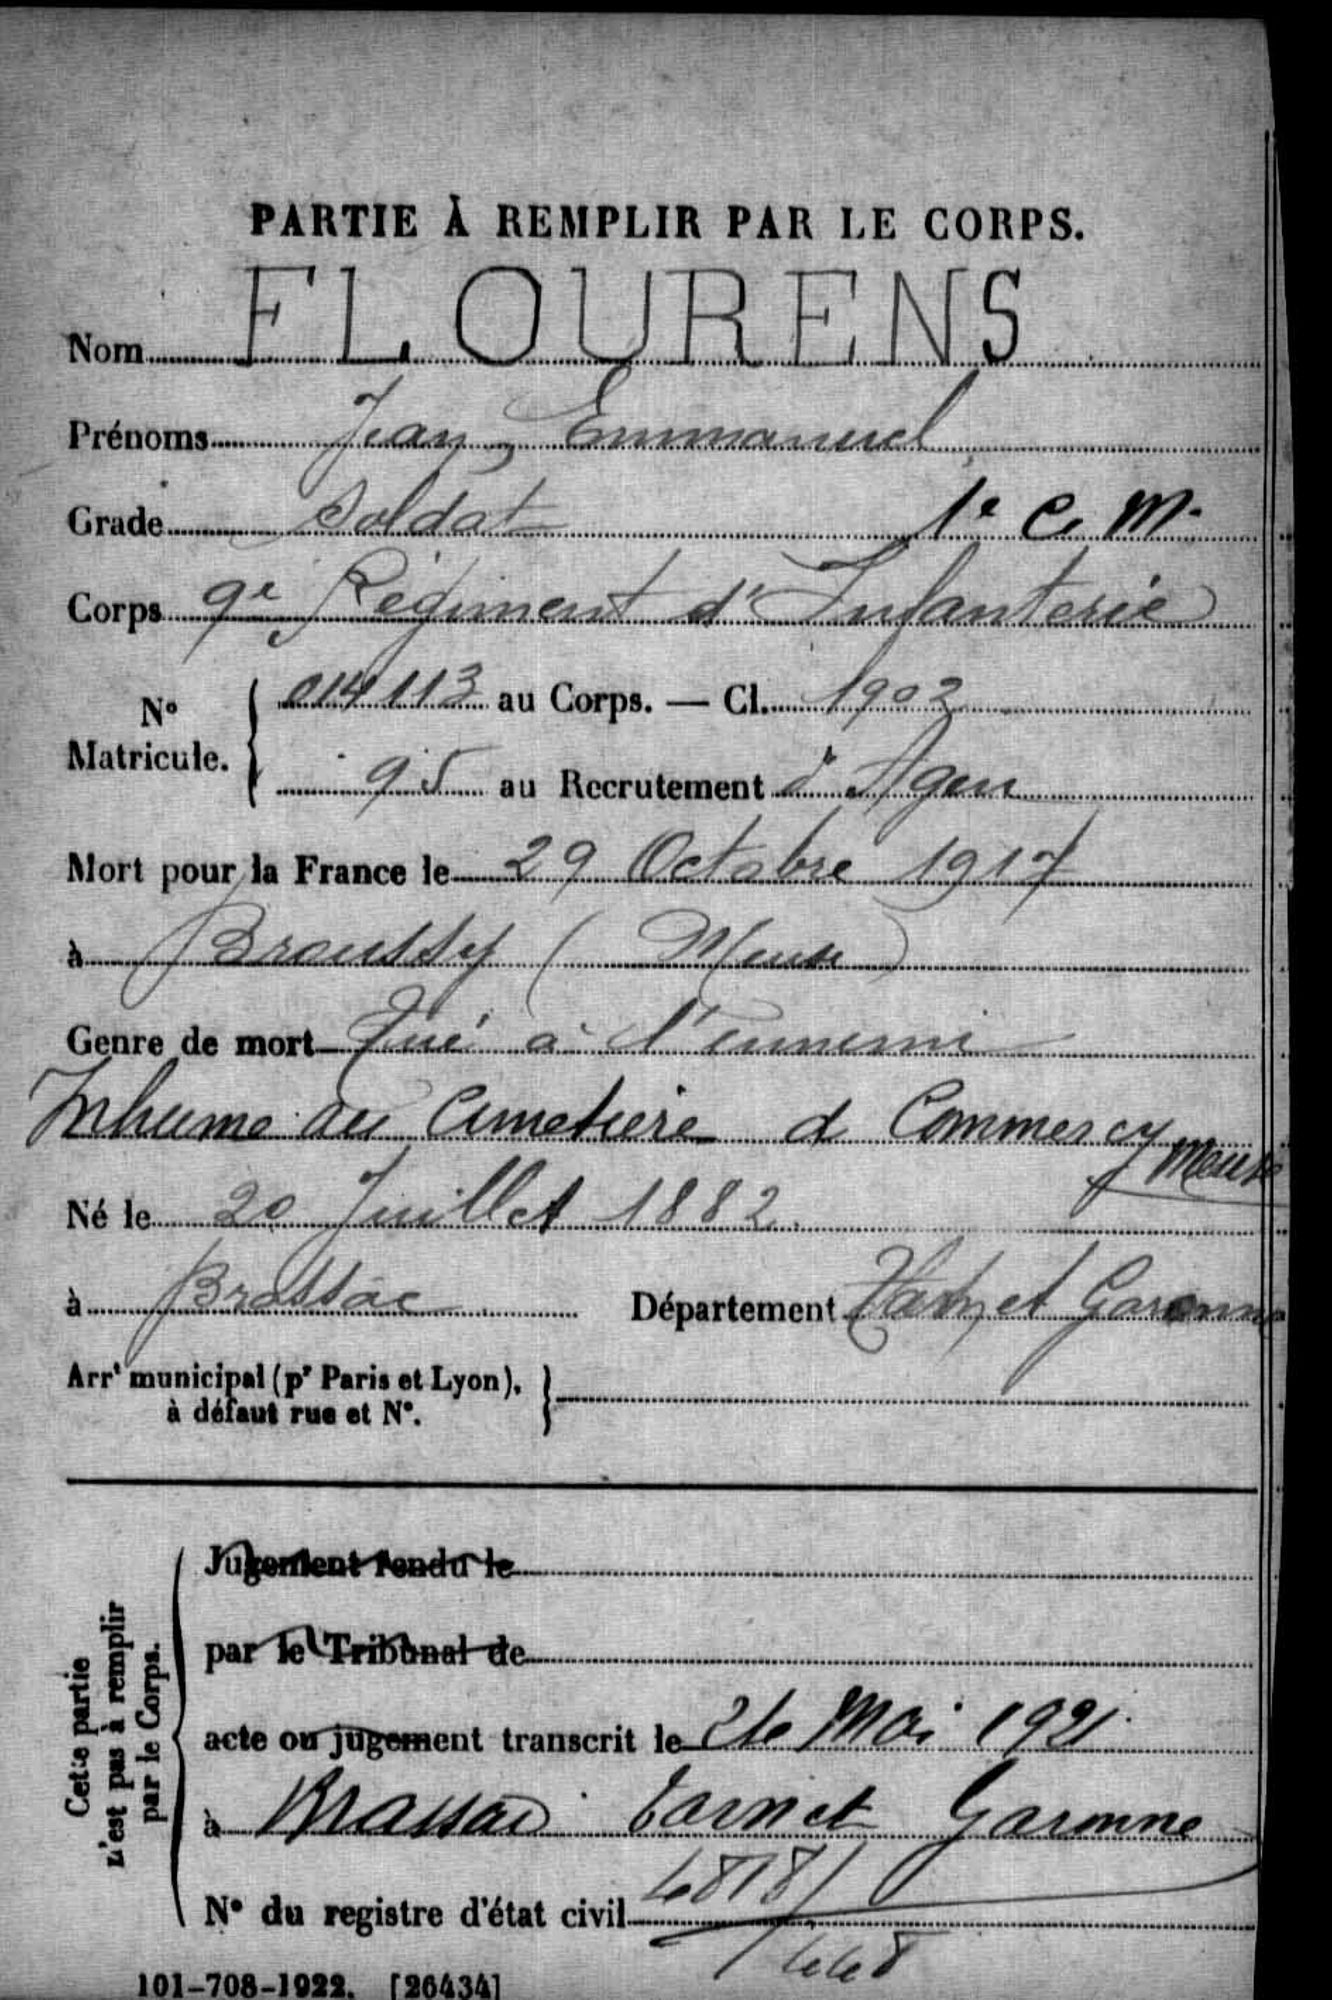 PARTIE À REMPLIR PAR LE CORPS.
Nom FLOURENS
Prénoms Jean, Emmanuel
Grade Soldat 1e C. M.
Corps 9e Régiment d'Infanterie
N° Matricule. 014113 au Corps. — Cl. 1902
95 au Recrutement d'Agen
Mort pour la France le 29 Octobre 1917
à Broussy (Meuse)
Genre de mort Tué à l'ennemi
Inhume au Cimetiere d Commercy Meuse
Né le 20 Juillet 1882.
à Brassac Département Tarn et Garonne
Arrt municipal (pr Paris et Lyon),
à défaut rue et N°.
Cette partie
n'est pas à remplir
par le Corps.
Jugement rendu le
par le Tribunal de
acte ou jugement transcrit le Mai 1921
à Brassac Tarn et Garonne
N° du registre d'état civil
101-708-1922. [26434]